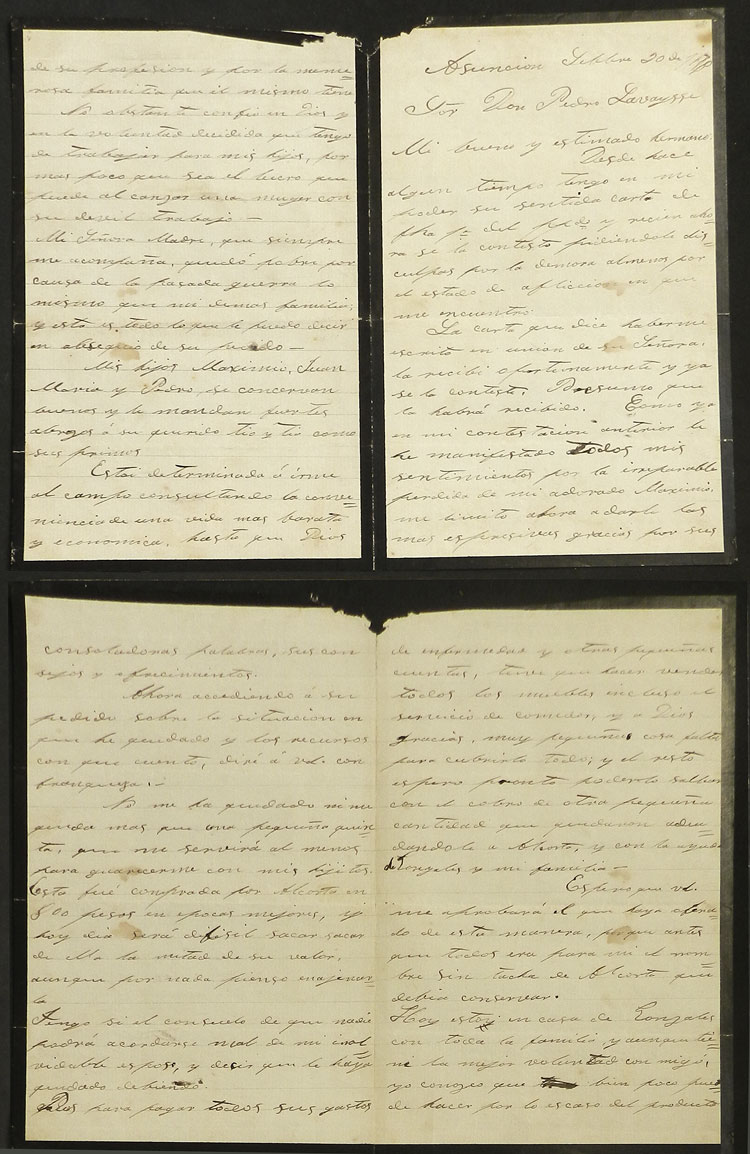 Asuncion Setbre 20 de 1878
Sōr Don Pedro Lavaysse
Mi bueno y estimado hermano:
Desde hace
algun tiempo tengo en mi
poder su sentida carta de
fha 1º del ppdo y recien aho=
ra se la contesto pidiendole dis=
culpas por la demora almenos por
el estado de afliccion en que
me encuentro.
La carta que dice haberme
escrito en union de su Señora,
la recibi oportunamente y ya
se la contesté. Presumo que
la habrá recibido. Como ya
en mi contestacion anterior le
he manifestado todos mis
sentimientos por la irreparable
perdida de mi adorado Maximio,
me limito ahora a darle las
mas espresivas gracias por sus
consoladoras palabras, sus con
sejos y ofrecimientos.
Ahora accediendo á su
pedido sobre la situacion en
que he quedado y los recursos
con que cuento, diré á vd. con
franqueza:-
No me ha quedado ni me
queda mas que una pequeña quin=
ta, que me servirá al menos
para guarecerme con mis hijitos.
Esta fué comprada por Alcorta en
800 pesos en epocas mejores, y
hoy dia será dificil sacar sacar
de ella la mitad de su valor,
aunque por nada pienso enajenar=
la
Tengo si el consuelo de que nadie
podrá acordarse mal de mi inol=
vidable esposo, y decir que le haya
quedado debiendo.
Pues para pagar todos sus gastos
de enfermedad y otras pequeñas
cuentas, tuve que hacer vender
todos los muebles incluso el
servicio de comedor, y a Dios
gracias, muy pequeña cosa falta
para cubrirlo todo; y el resto
espero pronto poderlo saldar
con el cobro de otra pequeña
cantidad que quedaron adeu=
dandole a Alcorta, y con la ayuda
de Gonzales y mi familia-
Espero que vd.
me aprobará el que haya obra=
do de esta manera, porque antes
que todos era para mi el nom=
bre sin tacha de Alcorta que
debia conservar.
Hoy estoy en casa de Gonzales
con toda la familia, y aunque tie=
ne la mejor voluntad con migo,
yo conozco que bien poco pue=
de hacer por lo escaso del producto
de su profesion y por la nume=
rosa familia que él mismo tiene
No obstante confio en Dios y
en la voluntad decidida que tengo
de trabajar para mis hijos, por
mas poco que sea el lucro que
puede alcanzar una muger con
su devil trabajo-
Mi Señora Madre, que siempre
me acompaña, quedó pobre por
causa de la pasada guerra lo
mismo que mi demas familia;
y esto es todo lo que le puedo decir
en obsequio de su pedido-
Mis hijos Maximio, Juan
Maria y Pedro, se concervan
buenos y le mandan fuertes
abrazos á su querido tio y tia como
sus primos
Estoi determinada á irme
al campo consultando la conve=
niencia de una vida mas barata
y economica, hasta que Dios